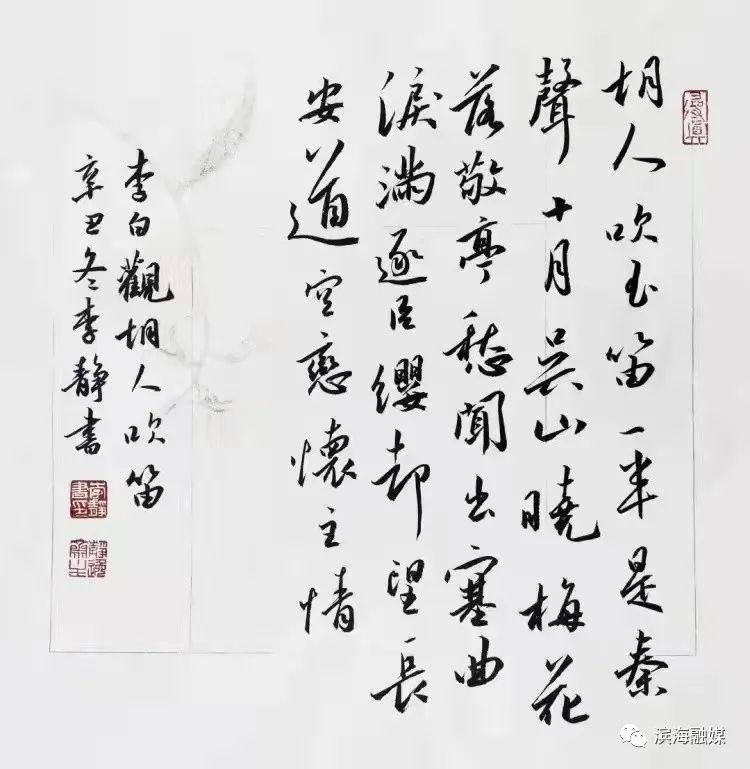 胡人吹玉笛一半是秦
聲十月吳山曉梅花
落敬亭愁聞出塞曲
淚滿逐臣纓却望長
安道空戀懷主情
李白觀胡人吹笛
辛丑冬李靜書
李靜書印
滨海融媒